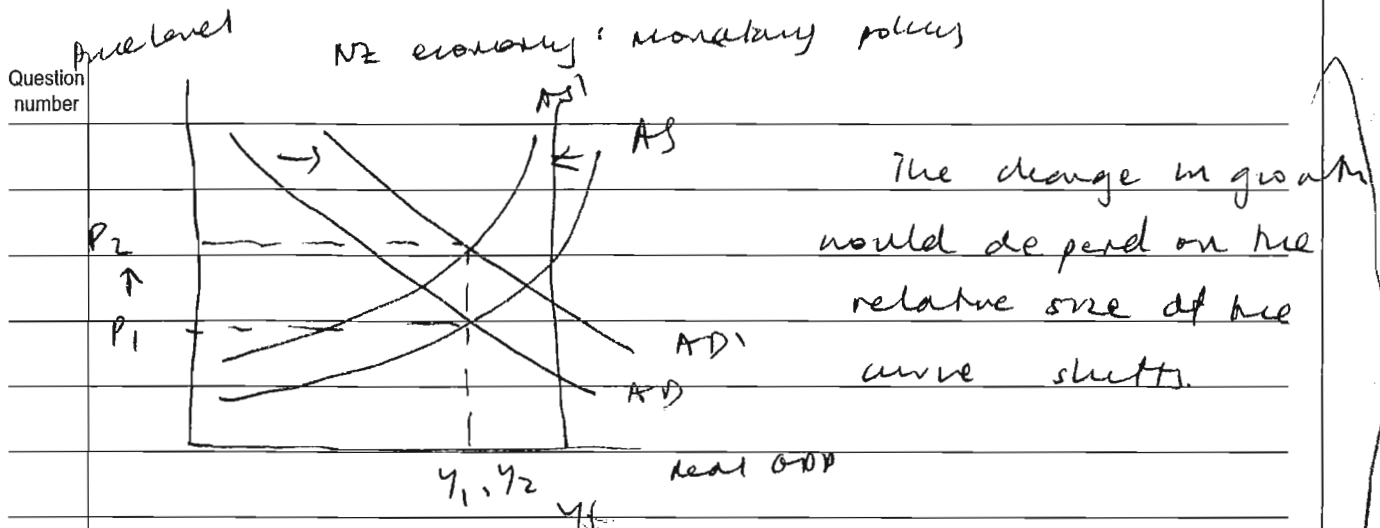 Price level
NZ economy: monetary policy
Question
number
AS'
AS
The change in growth
would depend on the
P2
relative size of the
P1
AD'
curve shifts.
AD
real GDP
Y1, Y2
Yf